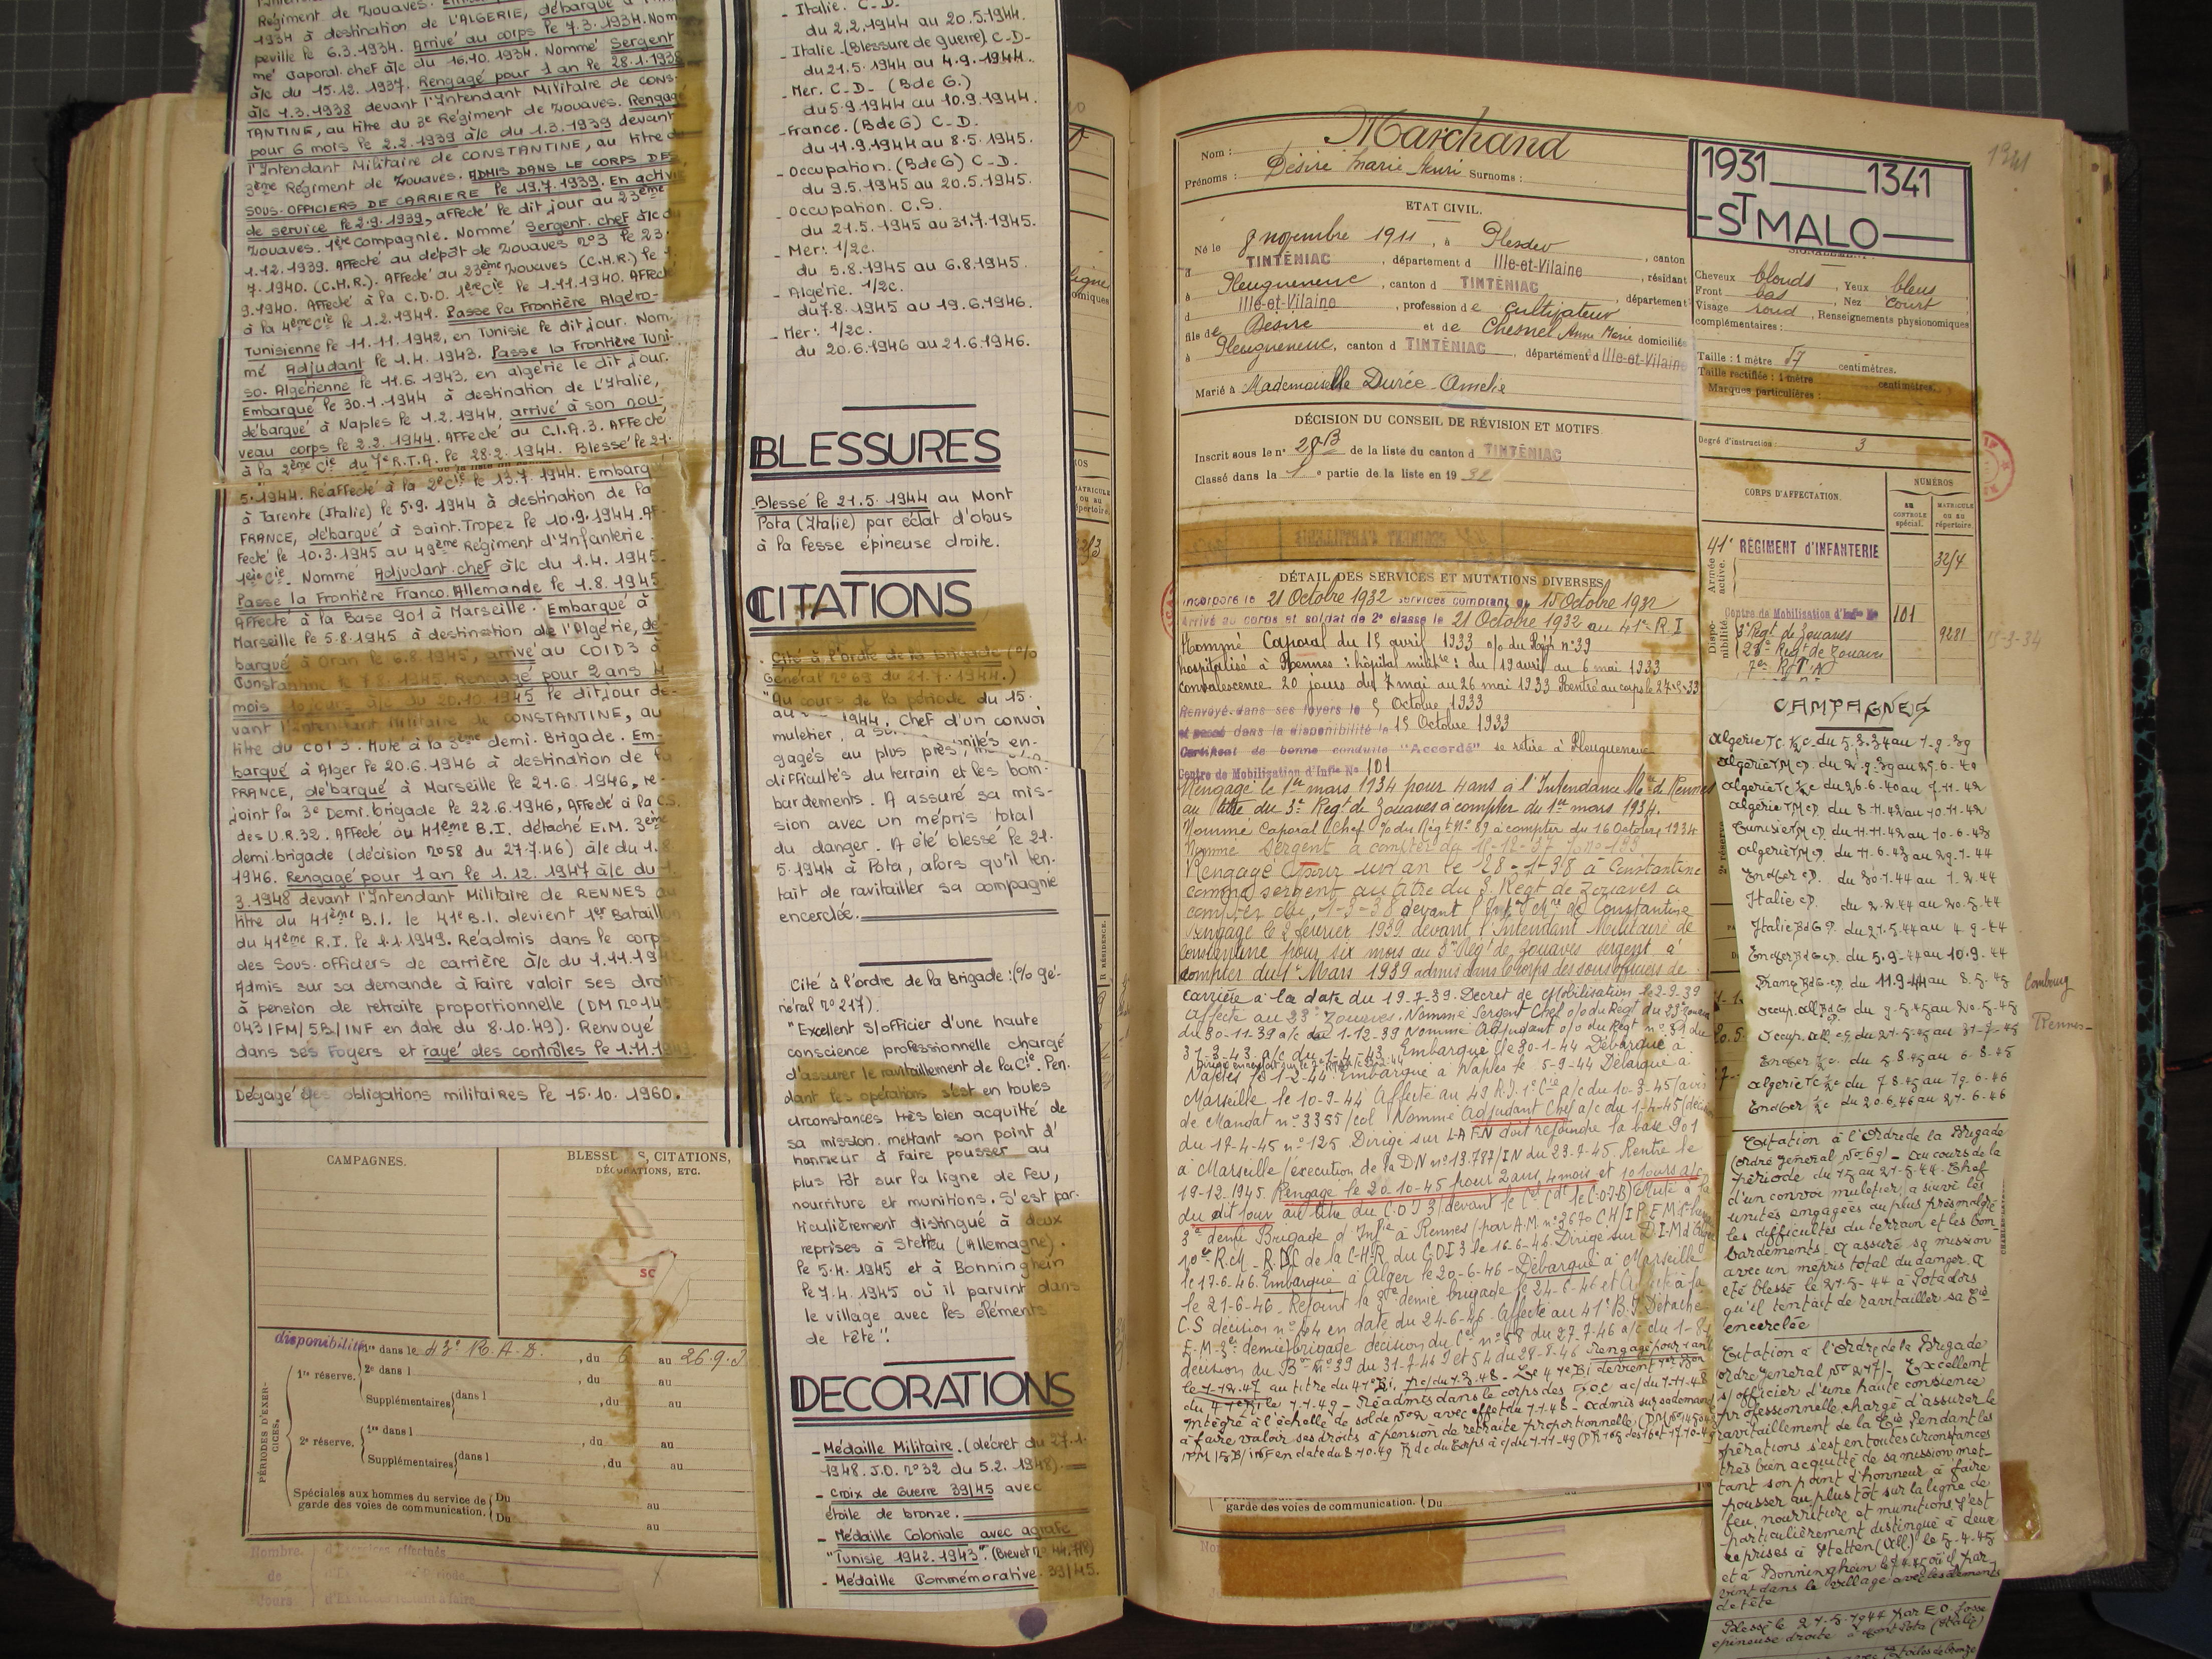 Régiment de Zouaves.
1934 à destination de L'ALGERIE, débarqué à
peville le 6.3.1934. Arrivé au corps le 7.3.1934. Nom
mé Caporal. chef à/c du 16.10.1934. Nommé Sergent
à/c du 15.12.1937. Rengagé pour 1 an le 28.1.1938
à/c 1.3.1938 devant l'Intendant Militaire de CONS-
TANTINE, au titre du 3e Régiment de Zouaves. Rengagé
pour 6 mois le 2.2.1939 à/c du 1.3.1939 devant
l'Intendant Militaire de CONSTANTINE, au titre
3ème Régiment de Zouaves. ADMIS DANS LE CORPS DES
SOUS-OFFICIERS DE CARRIERE le 19.7.1939. En activité
de service le 2.9.1939, affecté le dit jour au 23ème
Zouaves. 1ère Compagnie. Nommé Sergent. chef à/c du
1.12.1939. Affecté au dépôt de Zouaves n°3 le 23.
7.1940. (C.H.R.). Affecté au 23ème Zouaves (C.H.R.) le 1.
9.1940. Affecté à la C.D.O. 1ère Cie le 1.11.1940. Affecté
à la 4ème Cie le 1.2.1941. Passe la Frontière Algéro-
Tunisienne le 11.11.1942, en Tunisie le dit jour. Nom-
mé Adjudant le 1.4.1943. Passe la Frontière Tuni-
so. Algérienne le 11.6.1943, en algérie le dit jour.
Embarqué le 30.1.1944 à destination de L'Italie,
débarqué à Naples le 1.2.1944, arrivé à son nou-
veau corps le 2.2.1944. Affecté au C.I.A.3. Affecté
à la 2ème Cie du 7e R.T.A. le 28.2.1944. Blessé le 21.
5.1944. Réaffecté à la 2e Cie le 13.7.1944. Embarqué
à Tarente (Italie) le 5.9.1944 à destination de la
FRANCE, débarqué à Saint.Tropez le 10.9.1944. Af-
fecté le 10.3.1945 au 49ème Régiment d'Infanterie.
1ère Cie. Nommé Adjudant.chef à/c du 1.4.1945.
Passe la Frontière Franco.Allemande le 1.8.1945
Affecté à la Base 901 à Marseille. Embarqué à
Marseille le 5.8.1945 à destination de l'Algérie, dé-
barqué à Oran le 6.8.1945, arrivé au COID3 à
Constantine le 7.8.1945. Rengagé pour 2 ans 4
mois 10 jours à/c du 20.10.1945 le dit jour de-
vant l'Intendant Militaire de CONSTANTINE, au
titre du COI3. Muté à la 3ème demi.Brigade. Em-
barqué à Alger le 20.6.1946 à destination de la
FRANCE, débarqué à Marseille le 21.6.1946, re-
joint la 3e Demi.brigade le 22.6.1946, Affecté à la C.S.
des U.R.32. Affecté au 41ème B.I. détaché E.M. 3ème
demi.brigade (décision n°58 du 27.7.46) à/c du 1.8.
1946. Rengagé pour 1 an le 1.12.1947 à/c du 1.
3.1948 devant l'Intendant Militaire de RENNES au
titre du 41ème B.I. le 41e B.I. devient 1er Bataillon
du 41ème R.I. le 1.1.1949. Réadmis dans le corps
des Sous.officiers de carrière à/c du 1.11.194
Admis sur sa demande à faire valoir ses droits
à pension de retraite proportionnelle (DM n°145
043/FM/5B/INF en date du 8.10.49). Renvoyé
dans ses foyers et rayé des contrôles le 1.11.1949.
Dégagé des obligations militaires le 15.10.1960.
CAMPAGNES.
BLESSURES, CITATIONS,
DÉCORATIONS, ETC.
SC
disponibilité
1re dans le 43e R.A.D. , du 6 au 26.9.3
PÉRIODES D'EXERCICES.
1re réserve.
2e dans l , du au
Supplémentaires dans l , du au
2e réserve.
1re dans l , du au
Supplémentaires dans l , du au
Spéciales aux hommes du service de
garde des voies de communication.
Du au
Du au
Nombre
de
Jours
- Italie. C-D.
du 2.2.1944 au 20.5.1944.
- Italie.(Blessure de guerre). C-D-
du 21.5.1944 au 4.9.1944.
- Mer. C-D- (Bde G.)
du 5.9.1944 au 10.9.1944.
- France. (BdeG) C-D.
du 11.9.1944 au 8.5.1945.
- Occupation. (BdeG) C-D.
du 9.5.1945 au 20.5.1945.
- Occupation. C.S.
du 21.5.1945 au 31.7.1945.
- Mer: 1/2c.
du 5.8.1945 au 6.8.1945.
- Algérie. 1/2c.
du 7.8.1945 au 19.6.1946.
- Mer: 1/2c.
du 20.6.1946 au 21.6.1946.
BLESSURES
Blessé le 21.5.1944 au Mont
Pota (Italie) par éclat d'obus
à la fesse épineuse droite.
CITATIONS
Cité à l'ordre de la Brigade (%
Général n°69 du 21.7.1944.)
"Au cours de la période du 15.
au 1944. Chef d'un convoi
muletier, a unités en-
gagés au plus près,
difficultés du terrain et les bom-
bardements. A assuré sa mis-
sion avec un mépris total
du danger. A été blessé le 21.
5.1944 à Pota, alors qu'il ten-
tait de ravitailler sa compagnie
encerclée.
Cité à l'ordre de la Brigade:(% gé-
néral n°217).
"Excellent s/officier d'une haute
conscience professionnelle chargé
d'assurer le ravitaillement de la Cie. Pen.
dant les opérations s'est en toutes
circonstances très bien acquitté de
sa mission. mettant son point d'
honneur à faire pousser au
plus tôt sur la ligne de feu,
nourriture et munitions. S'est par-
ticulièrement distingué à deux
reprises à Stetten (Allemagne).
le 5.4.1945 et à Bonninghein
le 7.4.1945 où il parvint dans
le village avec les éléments
de tête".
DECORATIONS
- Médaille Militaire. (décret du 27.1.
1948. J.O. n°32 du 5.2.1948).
- Croix de Guerre 39/45 avec
étoile de bronze.
- Médaille Coloniale avec agrafe
"Tunisie 1942.1943". (Brevet n°44.
- Médaille Commémorative. 39/45.
1341
Nom : Marchand
Prénoms : Désiré Marie Henri Surnoms :
ETAT CIVIL.
Né le 8 novembre 1911 , à Plesder , canton
d TINTÉNIAC , département d Ille-et-Vilaine , résidant
à Pleugueneuc , canton d TINTÉNIAC , département
d Ille-et-Vilaine , profession de cultivateur
fils de Désiré et de Chesnel Anne Marie domiciliés
à Pleugueneuc, canton d TINTÉNIAC , département d Ille-et-Vilaine
Marié à Mademoiselle Durée Amélie
1931 1341
-ST MALO-
Cheveux blonds , Yeux bleus
Front bas , Nez court
Visage rond , Renseignements physionomiques
complémentaires :
Taille : 1 mètre 57 centimètres.
Taille rectifiée : 1 mètre centimètres.
Marques particulières :
Degré d'instruction : 3
DÉCISION DU CONSEIL DE RÉVISION ET MOTIFS.
Inscrit sous le n° 28B de la liste du canton d TINTÉNIAC
Classé dans la 1e partie de la liste en 19 32
CORPS D'AFFECTATION.
NUMÉROS
AU CONTROLE spécial.
MATRICULE ou au répertoire.
Armée active.
41e RÉGIMENT D'INFANTERIE 3214
Disponibilité
Centre de Mobilisation d'Infie No 101
3e Régt de Zouaves 9281
23e Régt de Zouaves
7e R.T.A
DÉTAIL DES SERVICES ET MUTATIONS DIVERSES.
Incorporé le 21 Octobre 1932 services comptant du 15 Octobre 1932
Arrivé au corps et soldat de 2e classe le 21 Octobre 1932 au 41e R.I
Nommé Caporal du 15 avril 1933 o/o du Régt n°39
hospitalisé à Rennes : hôpital militre : du 19 avril au 6 mai 1933
Convalescence 20 jours du 7 mai au 26 mai 1933 Rentré au corps le 27-5-33
Renvoyé dans ses foyers le 5 Octobre 1933
et passé dans la disponibilité le 15 Octobre 1933
Certificat de bonne conduite "Accordé" se retire à Pleugueneuc
Centre de Mobilisation d'Infie No 101
Rengagé le 1er mars 1934 pour 4 ans à l'Intendance Mre de Rennes
au titre du 3e Régt de Zouaves à compter du 1er mars 1934.
Nommé Caporal Chef o/o du Régt N° 89 à compter du 16 Octobre 1934
Nommé Sergent à compter du 15-12-37
Rengagé pour un an le 28-1-38 à Constantine
comme sergent au titre du 3. Régt de Zouaves à
compter du 1-3-38 devant l'Int de Constantine
Rengagé le 2 février 1939 devant l'Intendant Militaire de
Constantine pour six mois au 3e Régt de Zouaves sergent à
compter du 1er Mars 1939 admis dans le corps des sous officiers de
carrière à la date du 19-7-39. Decret de Mobilisation le 2-9-39
affecté au 23e Zouaves. Nommé Sergent Chef o/o du Régt du 23e Zouaves
du 30-11-39 a/c du 1-12-39 Nommé Adjudant o/o du Régt n°39 du
31-3-43 a/c du 1-4-43 Embarqué le 30-1-44 Débarqué à
Naples le 1-2-44 Embarqué à Naples le 5-9-44 Débarqué à
Marseille le 10-9-44 Affecté au 49 R.I. 1e Cie a/c du 10-3-45 (avis
de Mandat n°3355/col) Nommé Adjudant Chef a/c du 1-4-45 (décision
du 17-4-45 n°125. Dirigé sur L'AFN doit rejoindre la base 901
à Marseille (exécution de la DN n°13.787/IN du 23-7-45. Rentré le
19-12-1945. Rengagé le 20-10-45 pour 2 ans, 4 mois et 10 jours a/c
du dit jour au titre du C.O.I 3
3e demie Brigade d'Infie à Rennes
10e R.M. R.DC de la C.H.R du COI3 le 16-6-46 Dirigé sur D.I.M d'Alger
le 17-6-46. Embarqué à Alger le 20-6-46 - Débarqué à Marseille
le 21-6-46. Rejoint la 3e demie brigade le 24-6-46 et affecté à la
C.S décision n°44 en date du 24-6-46. Affecté au 41e B.I. Détaché
E.M. 3e demie brigade décision du Cel n°58 du 27-7-46 a/c du 1-8-
décision du Bon n°39 du 31-7-46 et 54 du 28-8-46 Rengagé pour 1 an
le 1-12-47 au titre du 41e BI. p/c du 1.3.48 - Le 41e BI devient 1er Bon
du 41e RI le 1.1.49 - Réadmis dans le corps des S.O.C a/c du 1-11-48
intégré à l'échelle de solde n°2 avec effet du 1.1.48 - admis sur sa demande
à faire valoir ses droits à pension de retraite proportionnelle
garde des voies de communication. Du
CAMPAGNES
Algérie TC. 1/2c. du 5.3.34 au 1-9-39
Algérie TM CD. du 2.9.39 au 25.6-40
Algérie TC 1/2c du 26.6-40 au 7.11-42
Algérie TM CD. du 8-11-42 au 10-11-42
Tunisie TM CD. du 11-11.42 au 10-6-43
Algérie TM CD. du 11-6-43 au 29-1-44
En mer CD. du 30-1-44 au 1-2-44
Italie CD. du 2.2.44 au 20.5.44
Italie BdG CD. du 21.5.44 au 4 9-44
En mer BdG CD. du 5.9-44 au 10.9-44
France BdG CD. du 11.9.44 au 8.5.45
Occup. all BdG du 9-5.45 au 20.5-45
Occup. all. CS. du 21.5.45 au 31-7-45
En mer 1/2c. du 5.8.45 au 6.8-45
Algérie TC 1/2c du 7.8-45 au 19.6-46
En mer 1/2c du 20.6.46 au 21.6-46
Combourg
Rennes-
Citation à l'Ordre de la Brigade
(ordre général N° 69) - Au cours de la
période du 15 au 21-5-44. Chef
d'un convoi muletier, a suivi les
unités engagées au plus près malgré
les difficultés du terrain et les bom-
bardements. A assuré sa mission
avec un mépris total du danger. A
été blessé le 21.5-44 à Pota alors
qu'il tentait de ravitailler sa Cie
encerclée
Citation à l'Ordre de la Brigade
ordre général N° 217) - Excellent
s/officier d'une haute conscience
professionnelle chargé d'assurer le
ravitaillement de la Cie. Pendant les
opérations s'est en toutes circonstances
très bien acquitté de sa mission met-
tant son point d'honneur à faire
pousser au plus tôt sur la ligne de
feu nourriture et munitions. S'est
particulièrement distingué à deux
reprises à Stetten (All.) le 5.4.45
et à Bonninghein le 7.4.45 où il par-
vint dans le village avec les éléments
de tête
Blessé le 21-5-1944 par E.O. fosse
épineuse droite à Mont Pota (Italie)